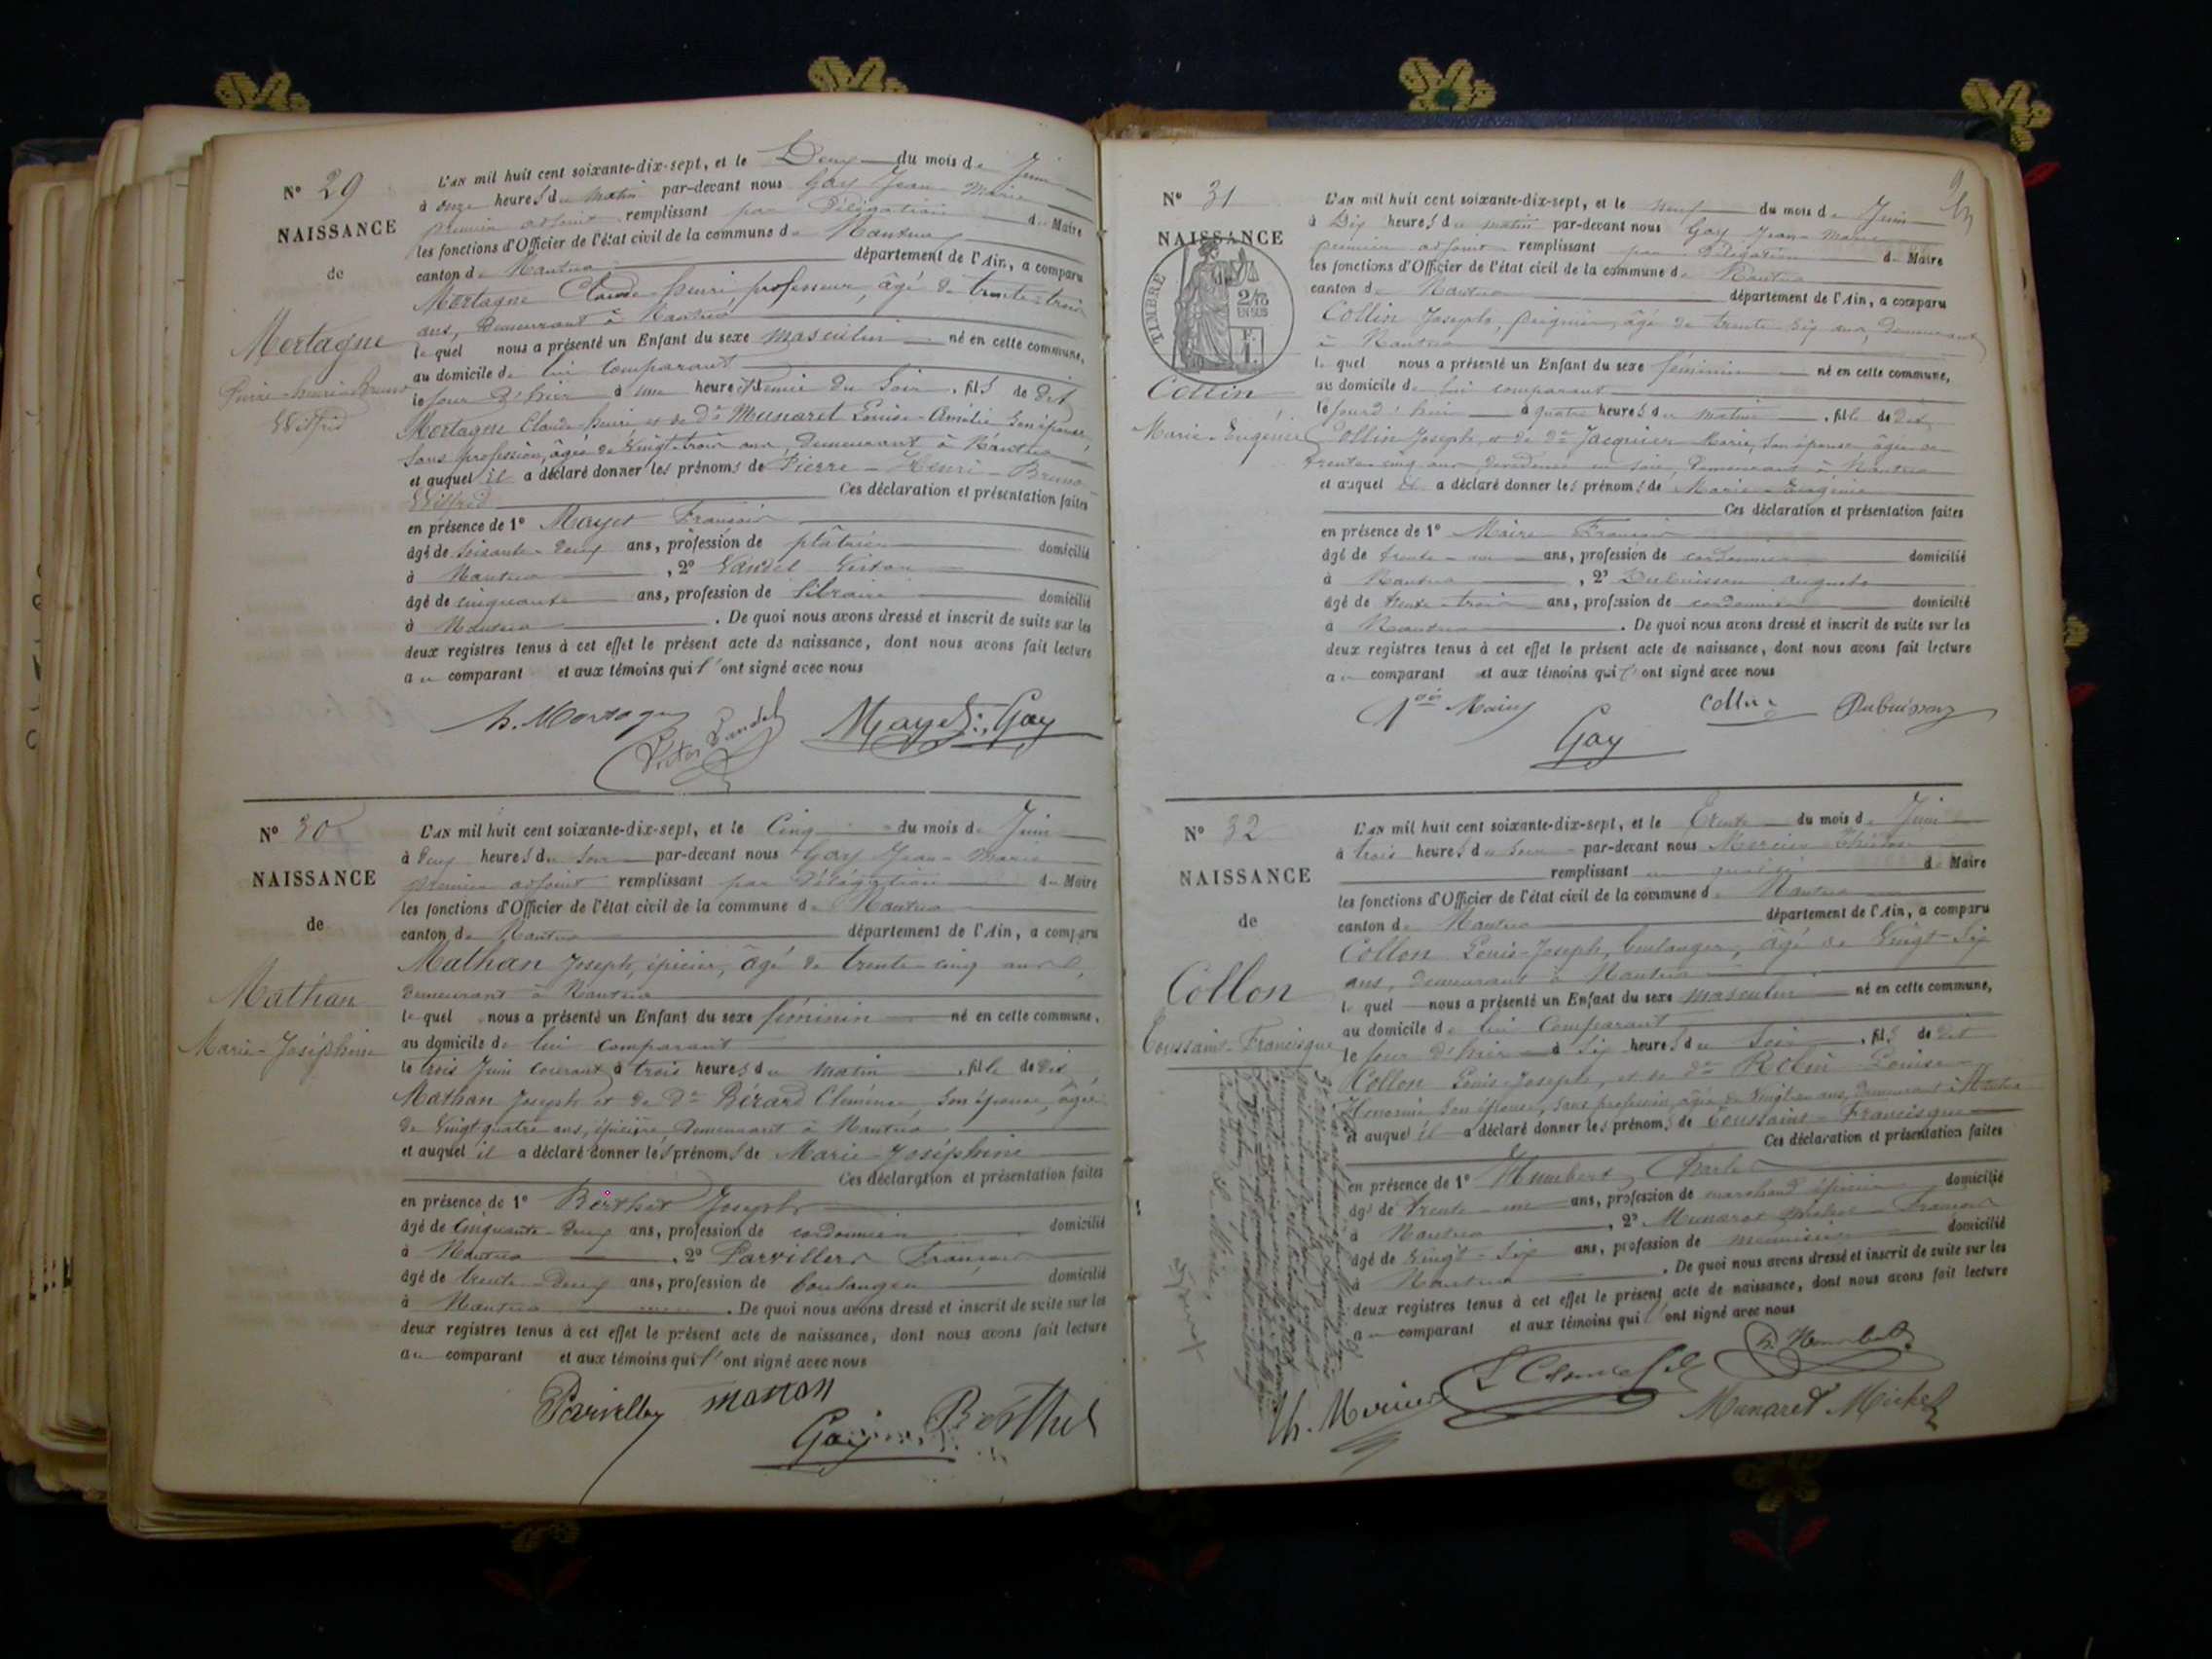 N° 29
NAISSANCE
de
Mortagne
Pierre-Henri-Bruno
Wilfrid
L'AN mil huit cent soixante-dix-sept, et le Deux du mois de Juin
à onze heures du matin par-devant nous Gay Jean-Marie
premier adjoint remplissant par Délégation du Maire
les fonctions d'Officier de l'état civil de la commune de Nantua
canton de Nantua département de l'Ain, a comparu
Mortagne Claude-henri, professeur, âgé de trente-trois
ans, Demeurant à Nantua
lequel nous a présenté un Enfant du sexe masculin né en cette commune,
au domicile de lui Comparant
le jour d'hier à une heure et demie du Soir, fils de dit
Mortagne Claude henri et de De Munaret Louise-Amélie Son épouse,
Sans profession, âgée de Vingt-trois ans Demeurant à Nantua
et auquel il a déclaré donner les prénoms de Pierre-Henri-Bruno-
Wilfrid Ces déclaration et présentation faites
en présence de 1° Mayet François
âgé de soixante-deux ans, profession de plâtrier domicilié
à Nantua, 2° Vandel Victor
âgé de cinquante ans, profession de libraire domicilié
à Nantua. De quoi nous avons dressé et inscrit de suite sur les
deux registres tenus à cet effet le présent acte de naissance, dont nous avons fait lecture
au comparant et aux témoins qui l'ont signé avec nous
h. Mortagne Victor Vandel Mayet Gay
N° 30
NAISSANCE
de
Mathan
Marie-Joséphine
L'AN mil huit cent soixante-dix-sept, et le Cinq du mois de Juin
à deux heures du soir par-devant nous Gay Jean-Marie
premier adjoint remplissant par Délégation du Maire
les fonctions d'Officier de l'état civil de la commune de Nantua
canton de Nantua département de l'Ain, a comparu
Mathan Joseph, épicier, âgé de trente-cinq ans,
demeurant à Nantua
lequel nous a présenté un Enfant du sexe féminin né en cette commune,
au domicile de lui comparant
le trois Juin courant à trois heures du matin, fille de dit
Mathan Joseph et de De Bérard Clémence, Son épouse, âgée
de Vingt-quatre ans, épicière, Demeurant à Nantua
et auquel il a déclaré donner les prénoms de Marie-Joséphine
Ces déclaration et présentation faites
en présence de 1° Berthet Joseph
âgé de Cinquante-deux ans, profession de cordonnier domicilié
à Nantua, 2° Parvillers François
âgé de trente-deux ans, profession de boulanger domicilié
à Nantua. De quoi nous avons dressé et inscrit de suite sur les
deux registres tenus à cet effet le présent acte de naissance, dont nous avons fait lecture
au comparant et aux témoins qui l'ont signé avec nous
mattan
Gay Berthet
N° 31
NAISSANCE
TIMBRE
2/10
EN SUS
Collin
Marie-Eugénie
L'AN mil huit cent soixante-dix-sept, et le neuf du mois de Juin
à Dix heures du matin par-devant nous Gay Jean-Marie
premier adjoint remplissant par Délégation du Maire
les fonctions d'Officier de l'état civil de la commune de Nantua
canton de Nantua département de l'Ain, a comparu
Collin Joseph, peignier, âgé de trente-six ans, Demeurant
à Nantua
lequel nous a présenté un Enfant du sexe féminin né en cette commune,
au domicile de lui comparant
le jour d'hier à quatre heures du matin, fille de dit
Collin Joseph et de De Jacquier Marie, Son épouse âgée de
trente-cinq ans, dévideuse en soie, Demeurant à Nantua
et auquel il a déclaré donner les prénoms de Marie-Eugénie
Ces déclaration et présentation faites
en présence de 1° Maire François
âgé de trente-un ans, profession de cordonnier domicilié
à Nantua, 2° Dubuisson Auguste
âgé de trente-trois ans, profession de cordonnier domicilié
à Nantua. De quoi nous avons dressé et inscrit de suite sur les
deux registres tenus à cet effet le présent acte de naissance, dont nous avons fait lecture
au comparant et aux témoins qui l'ont signé avec nous
Collin Dubuisson
Gay
N° 32
NAISSANCE
de
Collon
Toussaint-Francisque
L'AN mil huit cent soixante-dix-sept, et le Trente du mois de Juin
à trois heures du soir par-devant nous Mercier Théodore
remplissant en qualité de Maire
les fonctions d'Officier de l'état civil de la commune de Nantua
canton de Nantua département de l'Ain, a comparu
Collon Louis-Joseph, boulanger, âgé de Vingt-Six
ans, demeurant à Nantua
lequel nous a présenté un Enfant du sexe masculin né en cette commune,
au domicile de lui Comparant
le jour d'hier à Six heures du Soir, fils de dit
Collon Louis-Joseph, et de De Robin Louise-
Honorine Son épouse, Sans profession, âgée de Vingt-un ans, Demeurant à Nantua
et auquel il a déclaré donner les prénoms de Toussaint-Francisque
Ces déclaration et présentation faites
en présence de 1° Humbert Charles
âgé de trente-un ans, profession de marchand épicier domicilié
à Nantua, 2° Munaret Michel-François
âgé de Vingt-Six ans, profession de menuisier domicilié
à Nantua. De quoi nous avons dressé et inscrit de suite sur les
deux registres tenus à cet effet le présent acte de naissance, dont nous avons fait lecture
au comparant et aux témoins qui l'ont signé avec nous
Th. Mercier Munaret Michel